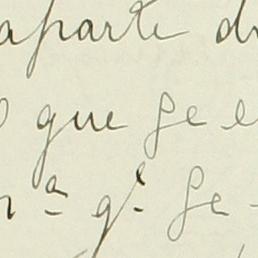 aparte d
que se e
n.ª q.e se